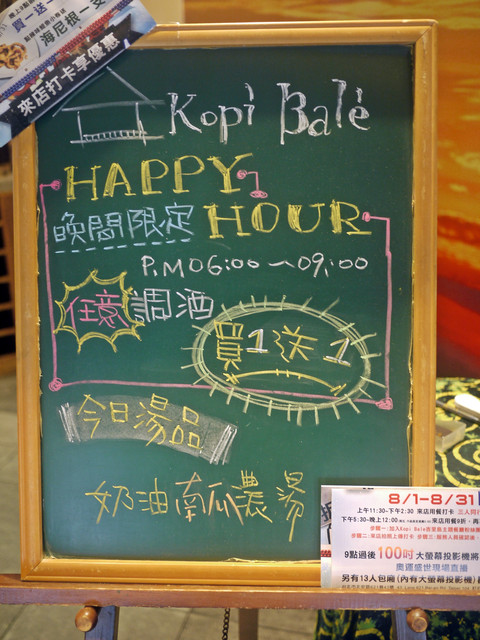 買一送一
海尼根一支
來店打卡享優惠
Kopi Balè
HAPPY
晚間限定 HOUR
P.M 06:00~09:00
任意調酒
買1送1
今日湯品
奶油南瓜農湯
8/1-8/31
上午11:30~下午2:30 來店用餐打卡 三人同行
下午5:30~晚上12:00 來店用餐9折
9點過後 100吋 大螢幕投影機將
奧運盛世現場直播
另有13人包廂(內有大螢幕投影機)